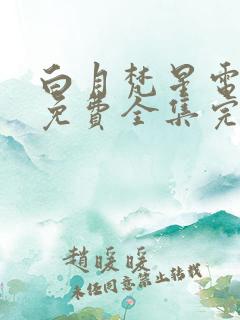 白月梵星電
免費全集完
趙暖暖
未任同意禁止轉載